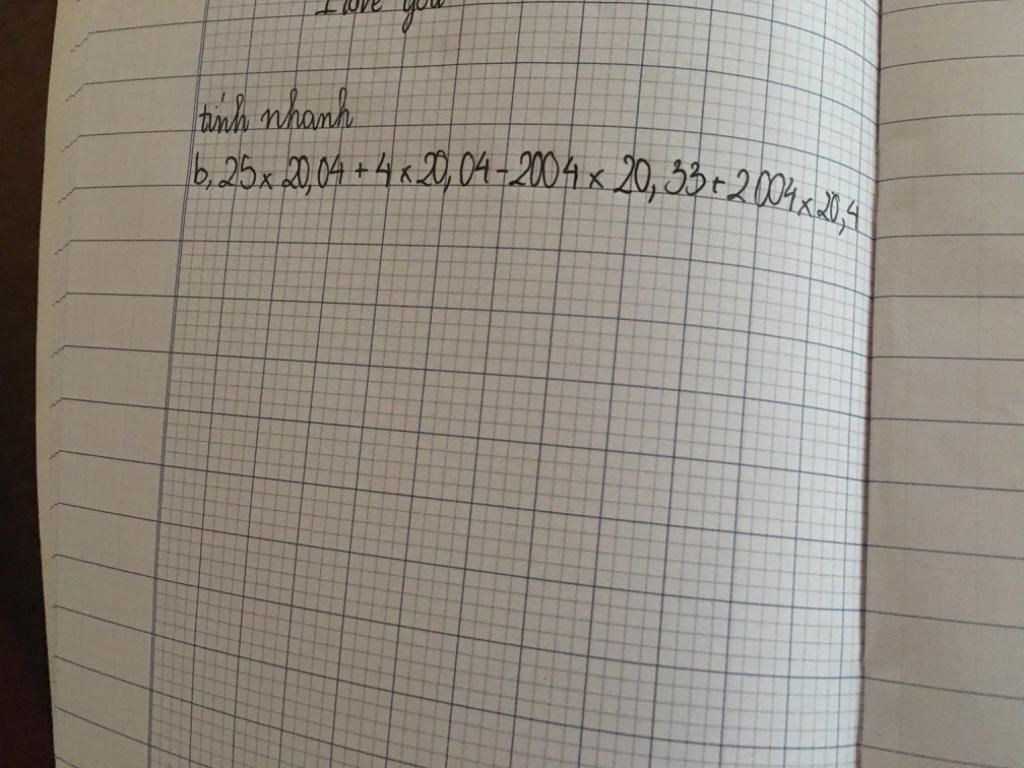 I love you
tính nhanh
b, 25 x 20,04 + 4 x 20,04 - 2004 x 20,33 + 2004 x 20,4